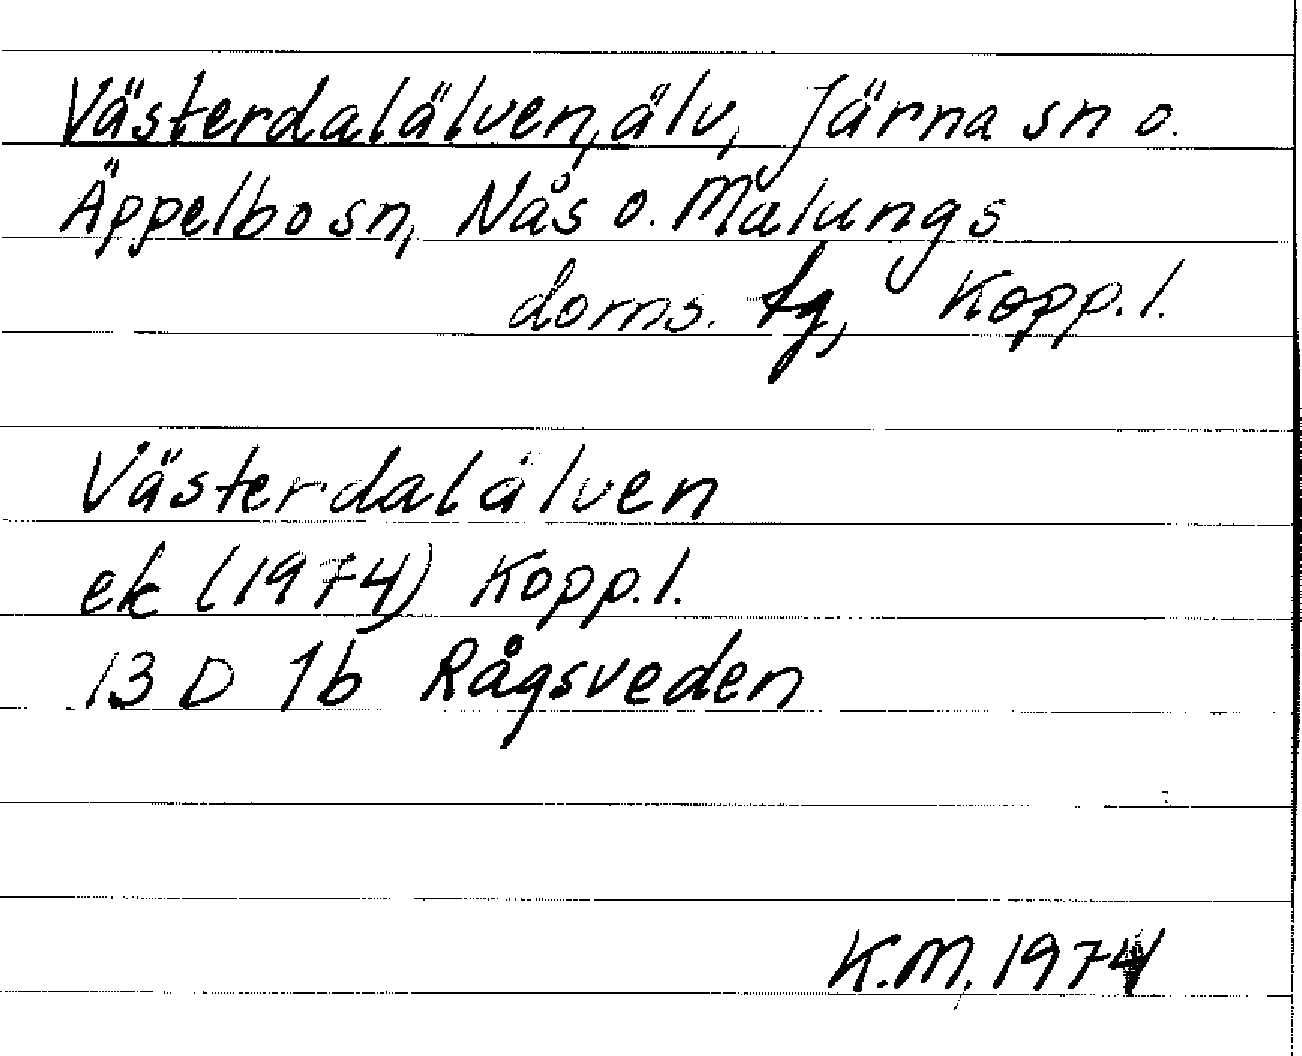 Västerdalälven, älv, Järna sn o.
Äppelbo sn, Nås o. Malungs
doms. tg, Kopp. l.
Västerdalälven
ek (1974) Kopp. l.
13 D 1b Rågsveden
K.M. 1974